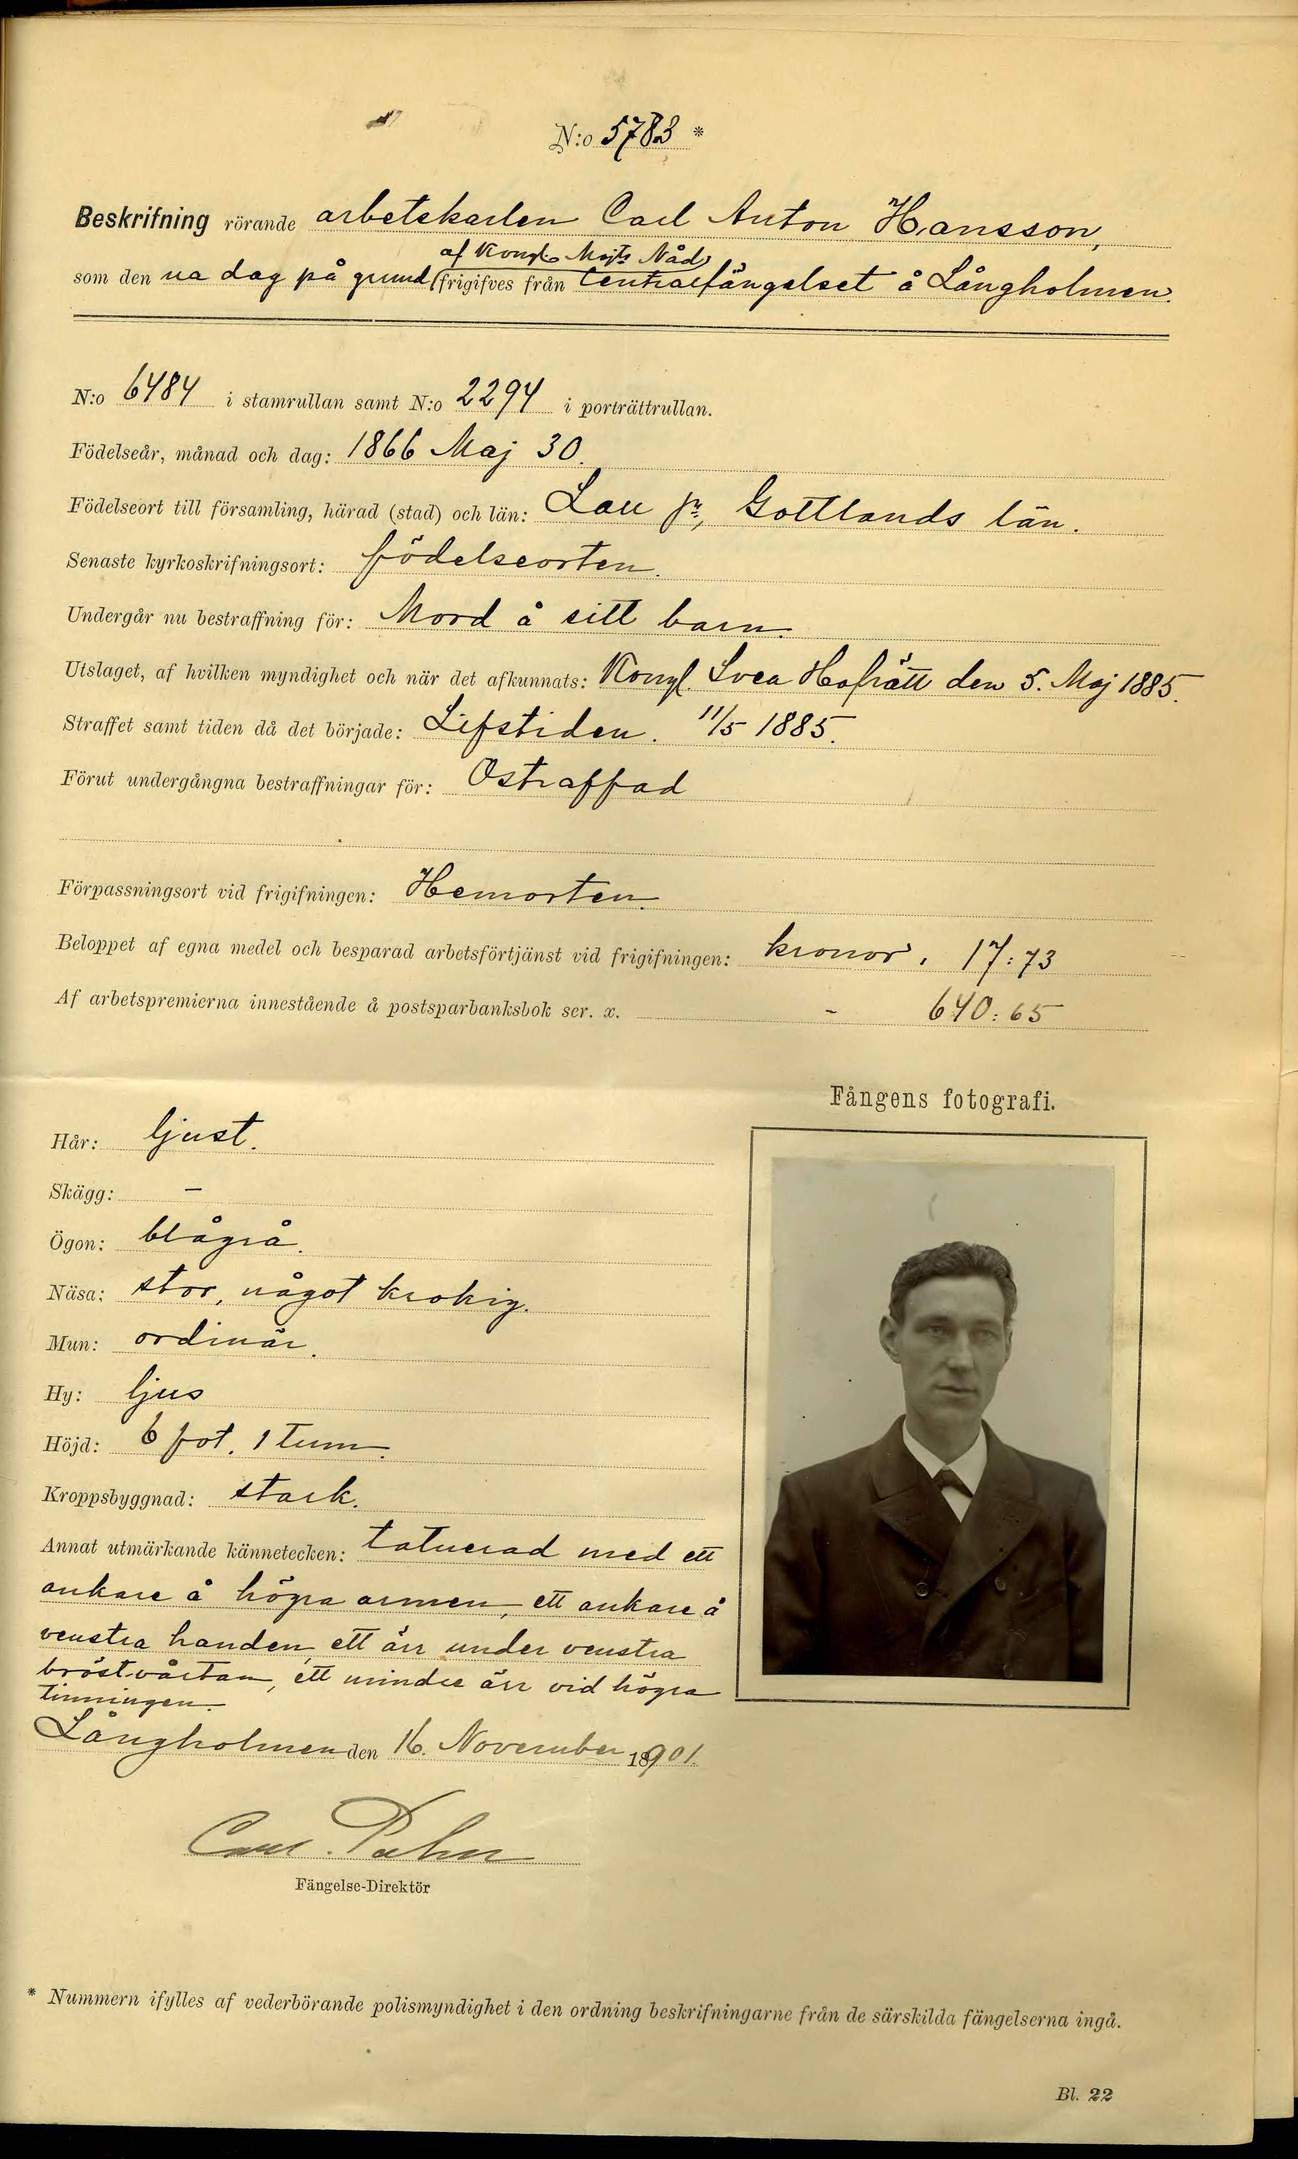 N:o 5783 *
Beskrifning rörande arbetskarlen Carl Anton Hansson,
af Kongl. Majts Nåd
som den na dag på grund frigifves från Centralfängelset å Långholmen.
N:o 6484 i stamrullan samt N:o 2294 i porträttrullan.
Födelseår, månad och dag: 1866 Maj 30.
Födelseort till församling, härad (stad) och län: Lau sn, Gottlands län.
Senaste kyrkoskrifningsort: födelseorten.
Undergår nu bestraffning för: Mord å sitt barn.
Utslaget, af hvilken myndighet och när det afkunnats: Kongl. Svea Hofrätt den 5. Maj 1885.
Straffet samt tiden då det började: Lifstiden. 11/5 1885.
Förut undergångna bestraffningar för: Ostraffad
Förpassningsort vid frigifningen: Hemorten.
Beloppet af egna medel och besparad arbetsförtjänst vid frigifningen: kronor. 17:73
Af arbetspremierna innestående å postsparbanksbok ser. x. - 640:65
Fångens fotografi.
Hår: ljust.
Skägg: —
Ögon: blågrå.
Näsa: stor, något krokig.
Mun: ordinär.
Hy: ljus
Höjd: 6 fot. 1 tum.
Kroppsbyggnad: stark.
Annat utmärkande kännetecken: tatuerad med ett
ankare å högra armen, ett ankare å
venstra handen, ett ärr under venstra
bröstvårtan, ett mindre ärr vid högra
tinningen.
Långholmen den 16. November 1901.
Carl
Fängelse-Direktör
* Nummern ifylles af vederbörande polismyndighet i den ordning beskrifningarne från de särskilda fängelserna ingå.
Bl. 22